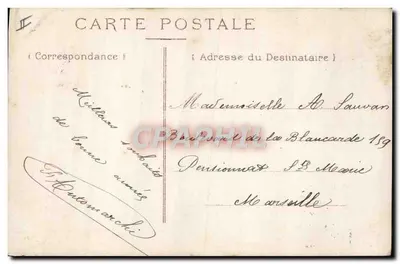 II
CARTE POSTALE
( Correspondance )
( Adresse du Destinataire )
Meilleurs souhaits
de bonne année
Mademoiselle A Sauvan
Boulevard de la Blancarde 159
Pensionnat Ste Marie
Marseille
CPARAMA